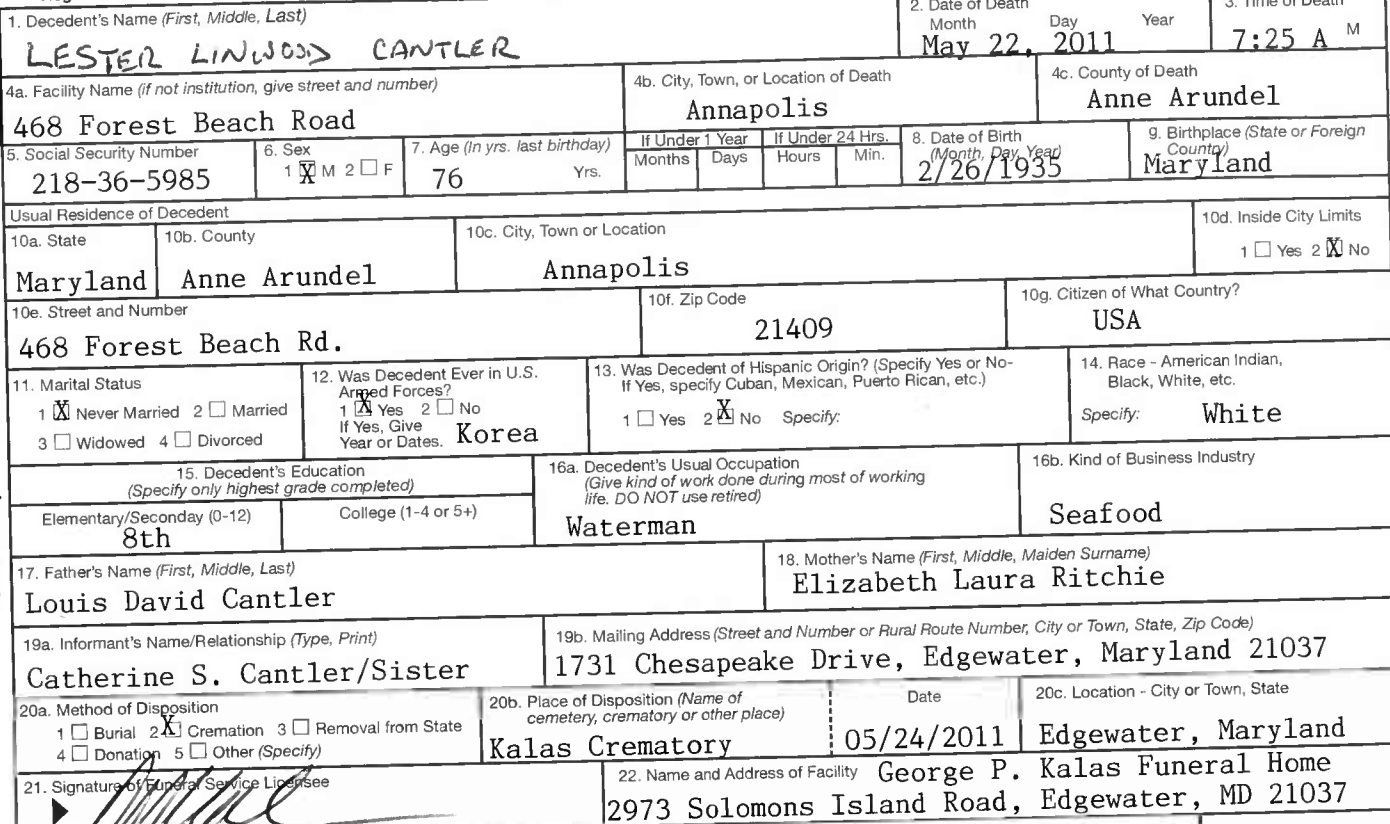 1. Decedent's Name (First, Middle, Last)
LESTER LINWOOD CANTLER
2. Date of Death
Month Day Year
May 22, 2011
3. Time of Death
7:25 A M
4a. Facility Name (if not institution, give street and number)
468 Forest Beach Road
4b. City, Town, or Location of Death
Annapolis
4c. County of Death
Anne Arundel
5. Social Security Number
218-36-5985
6. Sex
1 X M 2 ☐ F
7. Age (In yrs. last birthday)
76 Yrs.
If Under 1 Year
Months Days
If Under 24 Hrs.
Hours Min.
8. Date of Birth
(Month, Day, Year)
2/26/1935
9. Birthplace (State or Foreign
Country)
Maryland
Usual Residence of Decedent
10a. State
Maryland
10b. County
Anne Arundel
10c. City, Town or Location
Annapolis
10d. Inside City Limits
1 ☐ Yes 2 X No
10e. Street and Number
468 Forest Beach Rd.
10f. Zip Code
21409
10g. Citizen of What Country?
USA
11. Marital Status
1 X Never Married 2 ☐ Married
3 ☐ Widowed 4 ☐ Divorced
12. Was Decedent Ever in U.S.
Armed Forces?
1 X Yes 2 ☐ No
If Yes, Give
Year or Dates. Korea
13. Was Decedent of Hispanic Origin? (Specify Yes or No-
If Yes, specify Cuban, Mexican, Puerto Rican, etc.)
1 ☐ Yes 2 X No Specify:
14. Race - American Indian,
Black, White, etc.
Specify: White
15. Decedent's Education
(Specify only highest grade completed)
Elementary/Seconday (0-12)
8th
College (1-4 or 5+)
16a. Decedent's Usual Occupation
(Give kind of work done during most of working
life. DO NOT use retired)
Waterman
16b. Kind of Business Industry
Seafood
17. Father's Name (First, Middle, Last)
Louis David Cantler
18. Mother's Name (First, Middle, Maiden Surname)
Elizabeth Laura Ritchie
19a. Informant's Name/Relationship (Type, Print)
Catherine S. Cantler/Sister
19b. Mailing Address (Street and Number or Rural Route Number, City or Town, State, Zip Code)
1731 Chesapeake Drive, Edgewater, Maryland 21037
20a. Method of Disposition
1 ☐ Burial 2 X Cremation 3 ☐ Removal from State
4 ☐ Donation 5 ☐ Other (Specify)
20b. Place of Disposition (Name of
cemetery, crematory or other place)
Kalas Crematory
Date
05/24/2011
20c. Location - City or Town, State
Edgewater, Maryland
21. Signature of Funeral Service Licensee
22. Name and Address of Facility George P. Kalas Funeral Home
2973 Solomons Island Road, Edgewater, MD 21037